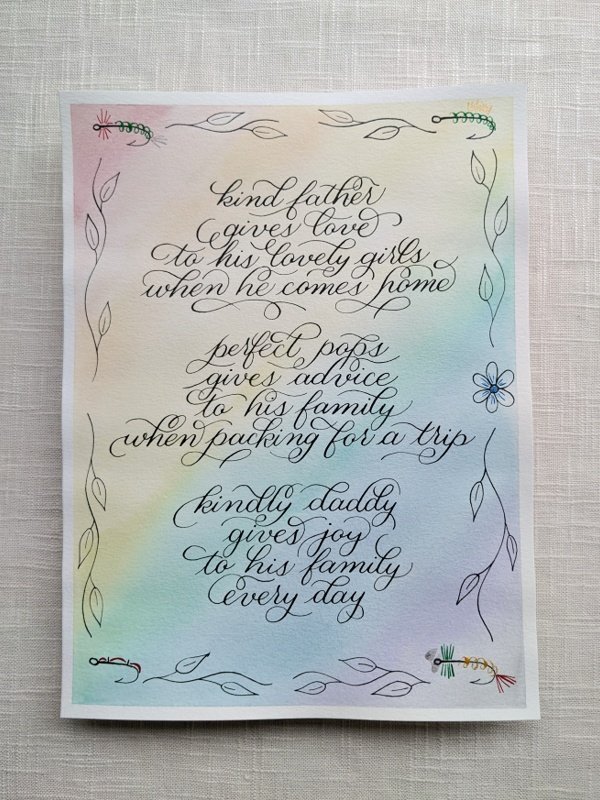 kind father
gives love
to his lovely girls
when he comes home
perfect pops
gives advice
to his family
when packing for a trip
kindly daddy
gives joy
to his family
every day